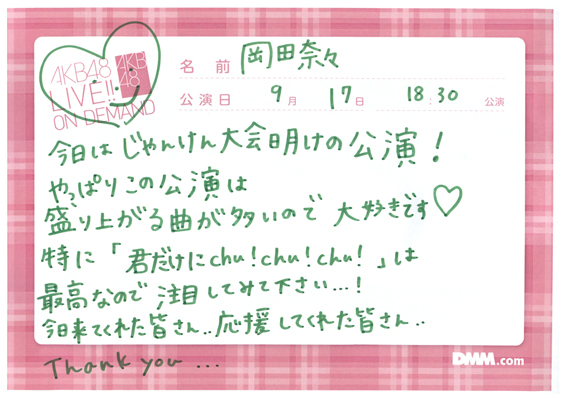 AKB48
LIVE!!
ON DEMAND
AKB
48
名 前 岡田奈々
公演日 9月 17日 18:30 公演
今日はじゃんけん大会明けの公演！
やっぱりこの公演は
盛り上がる曲が多いので 大好きです♡
特に「君だけにchu！chu！chu！」は
最高なので 注目してみて下さい...！
今日来てくれた皆さん..応援してくれた皆さん..
Thank you ...
DMM.com